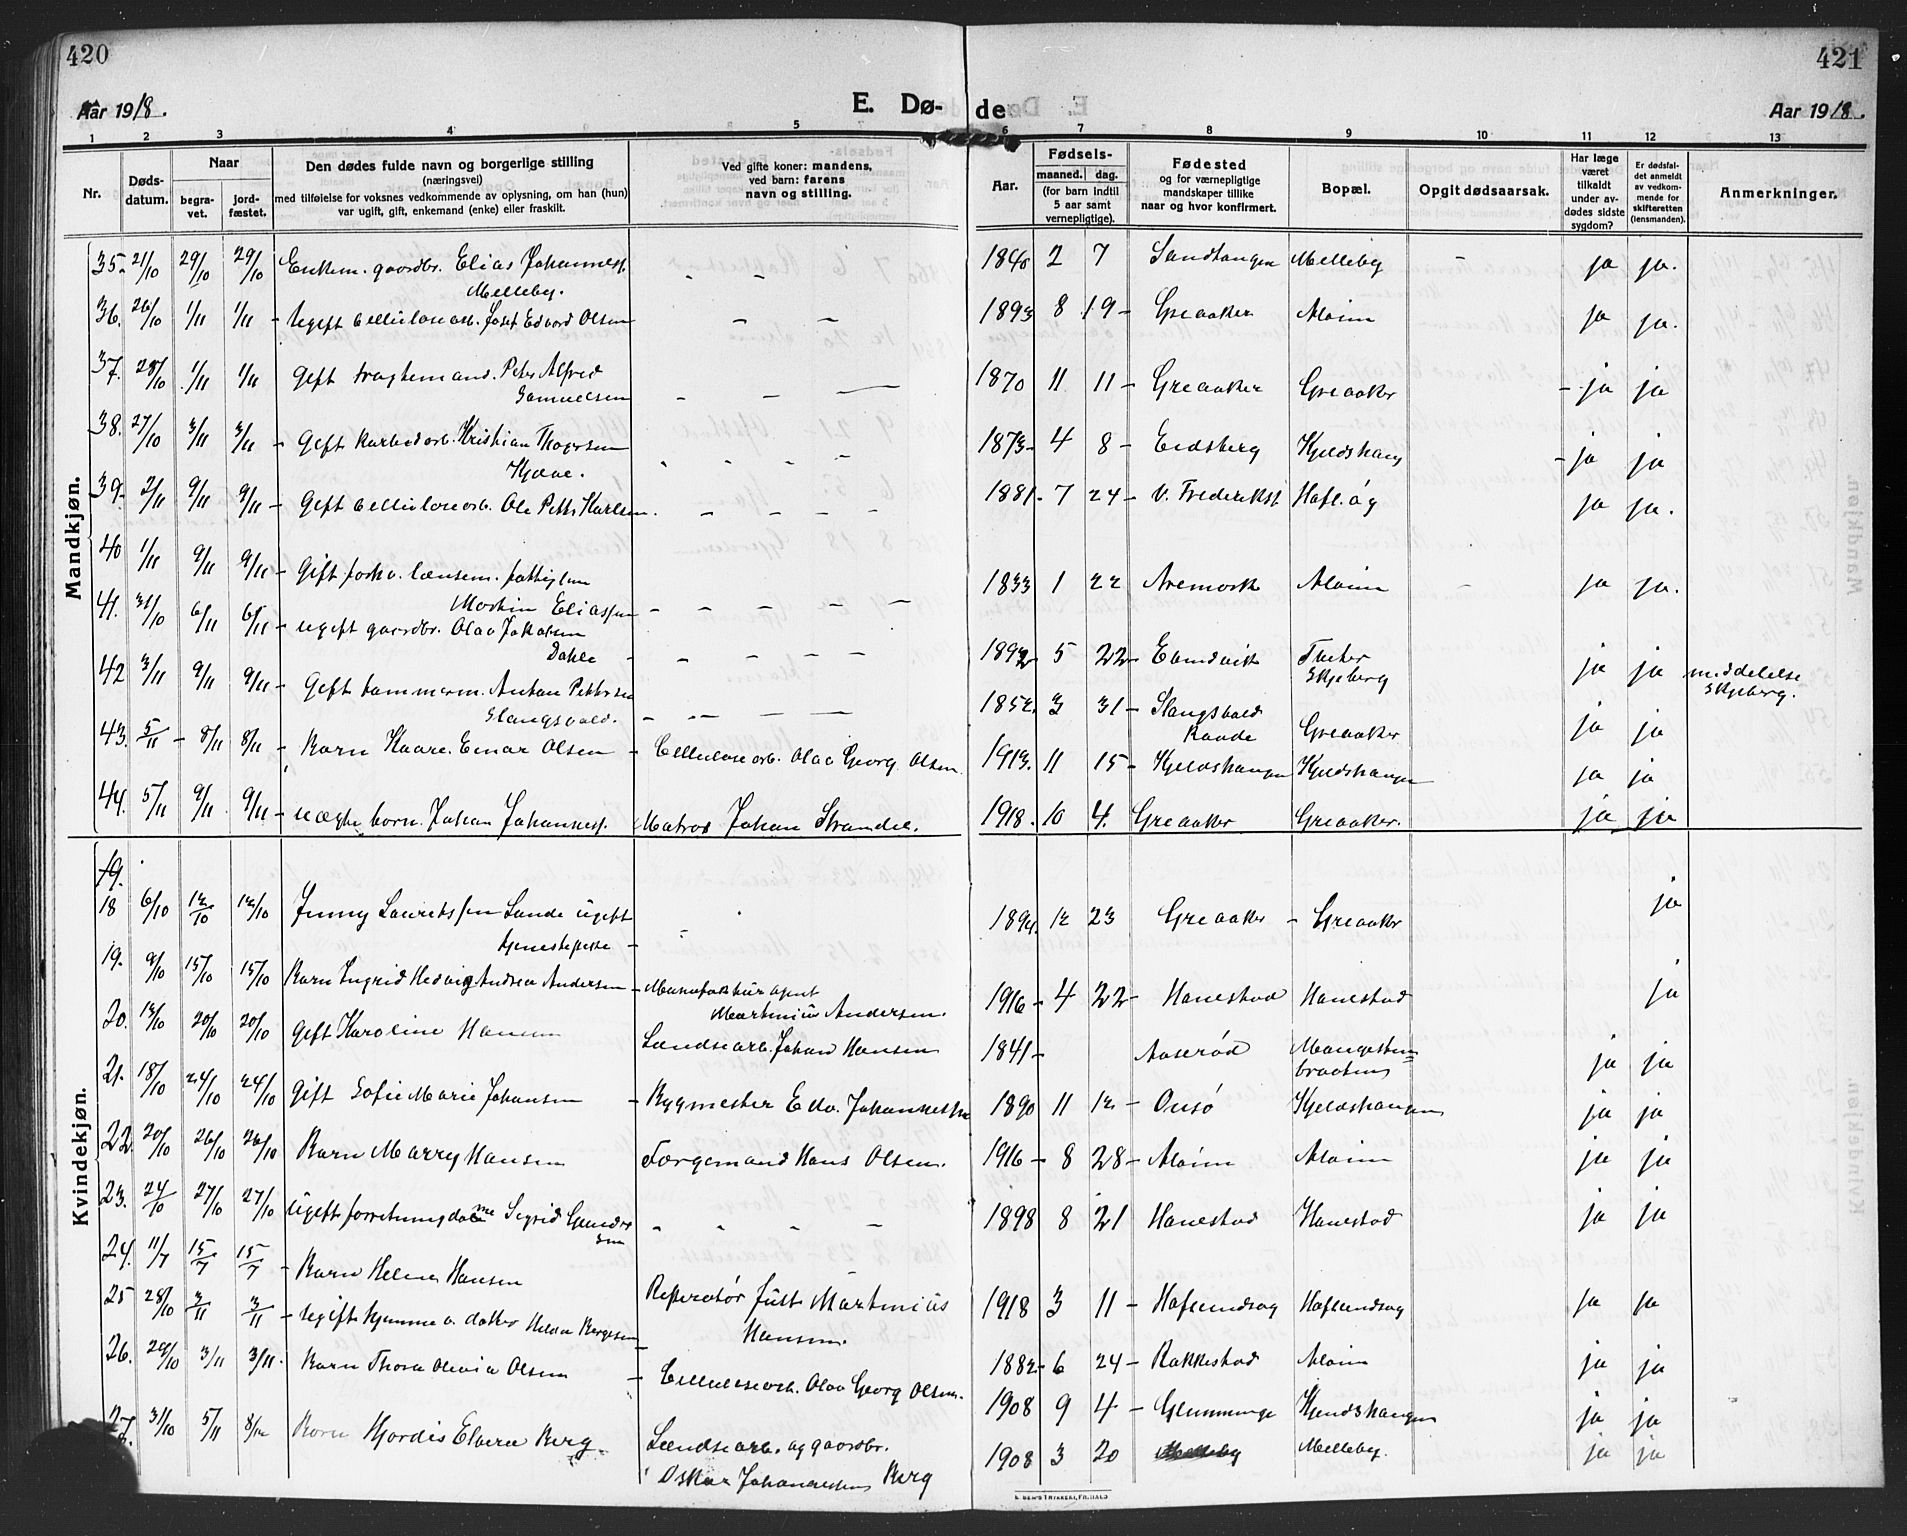 420
421
Aar 1918.
E. Dø-
de
Aar 1918.
1 2 3 4 5 6 7 8 9 10 11 12 13
Nr.
Døds-
datum.
Naar
begra-
vet.
jord-
fæstet.
Den dødes fulde navn og borgerlige stilling
(næringsvei)
med tilføielse for voksnes vedkommende av oplysning, om han (hun)
var ugift, gift, enkemand (enke) eller fraskilt.
Ved gifte koner: mandens,
ved barn: farens
navn og stilling.
Aar.
Fødsels-
maaned. dag.
(for barn indtil
5 aar samt
vernepligtige).
Fødested
og for værnepligtige
mandskaper tillike
naar og hvor konfirmert.
Bopæl.
Opgit dødsaarsak.
Har læge
været
tilkaldt
under av-
dødes sidste
sygdom?
Er dødsfal-
det anmeldt
av vedkom-
mende for
skifteretten
(lensmanden).
Anmerkninger.
Mandkjøn.
35. 21/10 29/10 29/10 Enkem. gaardbr. Elias Johanness. 1840 2 7 Sandtangen Melleby ja ja.
Melleby.
36. 26/10 1/11 1/11 Ugift Cellulosearb. Josef Edvard Olsen 1893 8 19 Greaaker Alvim ja ja.
37. 28/10 1/11 1/11 Gift Petter Alfred 1870 11 11 Greaaker Greaaker ja ja
Samuelsen
38. 27/10 3/11 3/11 Gift Karbidarb. Kristian Thorsen 1873 4 8 Eidsberg Kjeldshaug ja ja
39. 2/11 9/11 9/11 Gift Cellulosearb. Ole Petter Karlsen. 1881 7 24 V. Frederikst. Hafl.øg ja ja.
40 1/11 9/11 9/11 Gift forhv. lænsem. 1833 1 22 Aremark Alvim ja ja.
Martin Eliassen
41. 31/10 6/11 6/11 Ugift gaardbr. Olav Jakobsen 1892 5 22 ja ja meddelelse
Dahle Skjeberg Skjeberg.
42 3/11 9/11 9/11 Gift tømmerm. Anton Pettersen 1852. 3 31 Slangsvold Greaaker ja ja
Slangsvold. Raade
43. 5/11 8/11 8/11 Barn Kaare Einar Olsen Cellulose arb. Olav Georg Olsen 1913. 11 15 Kjeldshaugen Kjeldshaugen ja ja
44. 5/11 9/11 9/11 uægte barn. Johan Johanness. Matros Johan Strandli. 1918. 10 4. Greaaker Greaaker. ja ja
Kvindekjøn.
19.
18 6/10 12/10 12/10 Jenny Lauritssen Sande ugift 1894. 12 23 Greaaker Greaaker ja
tjenestepike
19. 9/10 15/10 15/10 Barn Ingrid Hedvig Andrea Andersen Manufakturagent 1916 4 22 Hanestad Hanestad ja
Martinius Andersen.
20. 13/10 20/10 20/10 Gift Karoline Hansen Lændsearb. Johan Hansen 1841 Aaserød Mangesten=
braatens ja ja
21. 18/10 24/10 24/10 Gift Sofie Marie Johansen Bygmester Edv. Johannessen 1890 11 12 Onsø Kjeldshaugen ja ja
22. 20/10 26/10 26/10 Barn Marry Hansen Færgemand Hans Olsen. 1916 8 28 Alvim Alvim ja ja
23. 24/10 27/10 27/10 Ugift forretningsdame Sigrid Gunder 1898 8 21 Hanestad Hanestad ja ja
sen
24. 11/7 15/7 15/7 Barn Helene Hansen Reperatør Just Martinius 1918 3 11 Hafslundsøg Hafslundsøg ja ja
Hansen.
25 28/10 3/11 3/11 Ugift hjemmev. datter Helda Børgesen 1882 6 24 Rakkestad Alvim ja ja
26. 29/10 3/11 3/11. Barn Thora Olevia Olsen Cellulosearb. Olav Georg Olsen. 1908 9 4 Glemminge Kjeldshaugen ja ja
27. 31/10 5/11 8/12 Barn Hjørdis Elvera Berg. Lændsearb. og gaardbr. 1908 3 20 Melleby Melleby. ja ja
Oskar Johannessen Berg
E. SEM'S TRYKKERI, FR.HALD